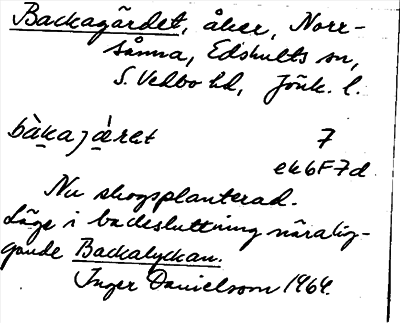 Backagärdet, åker, Norr-
sånna, Edshults sn,
S. Vedbo hd, Jönk. l.
bàkajæ̀rket 7
ek6F7d
Nu skogsplanterad.
Läge i backesluttning näralig-
gande Backalyckan.
Inger Danielsson 1964.